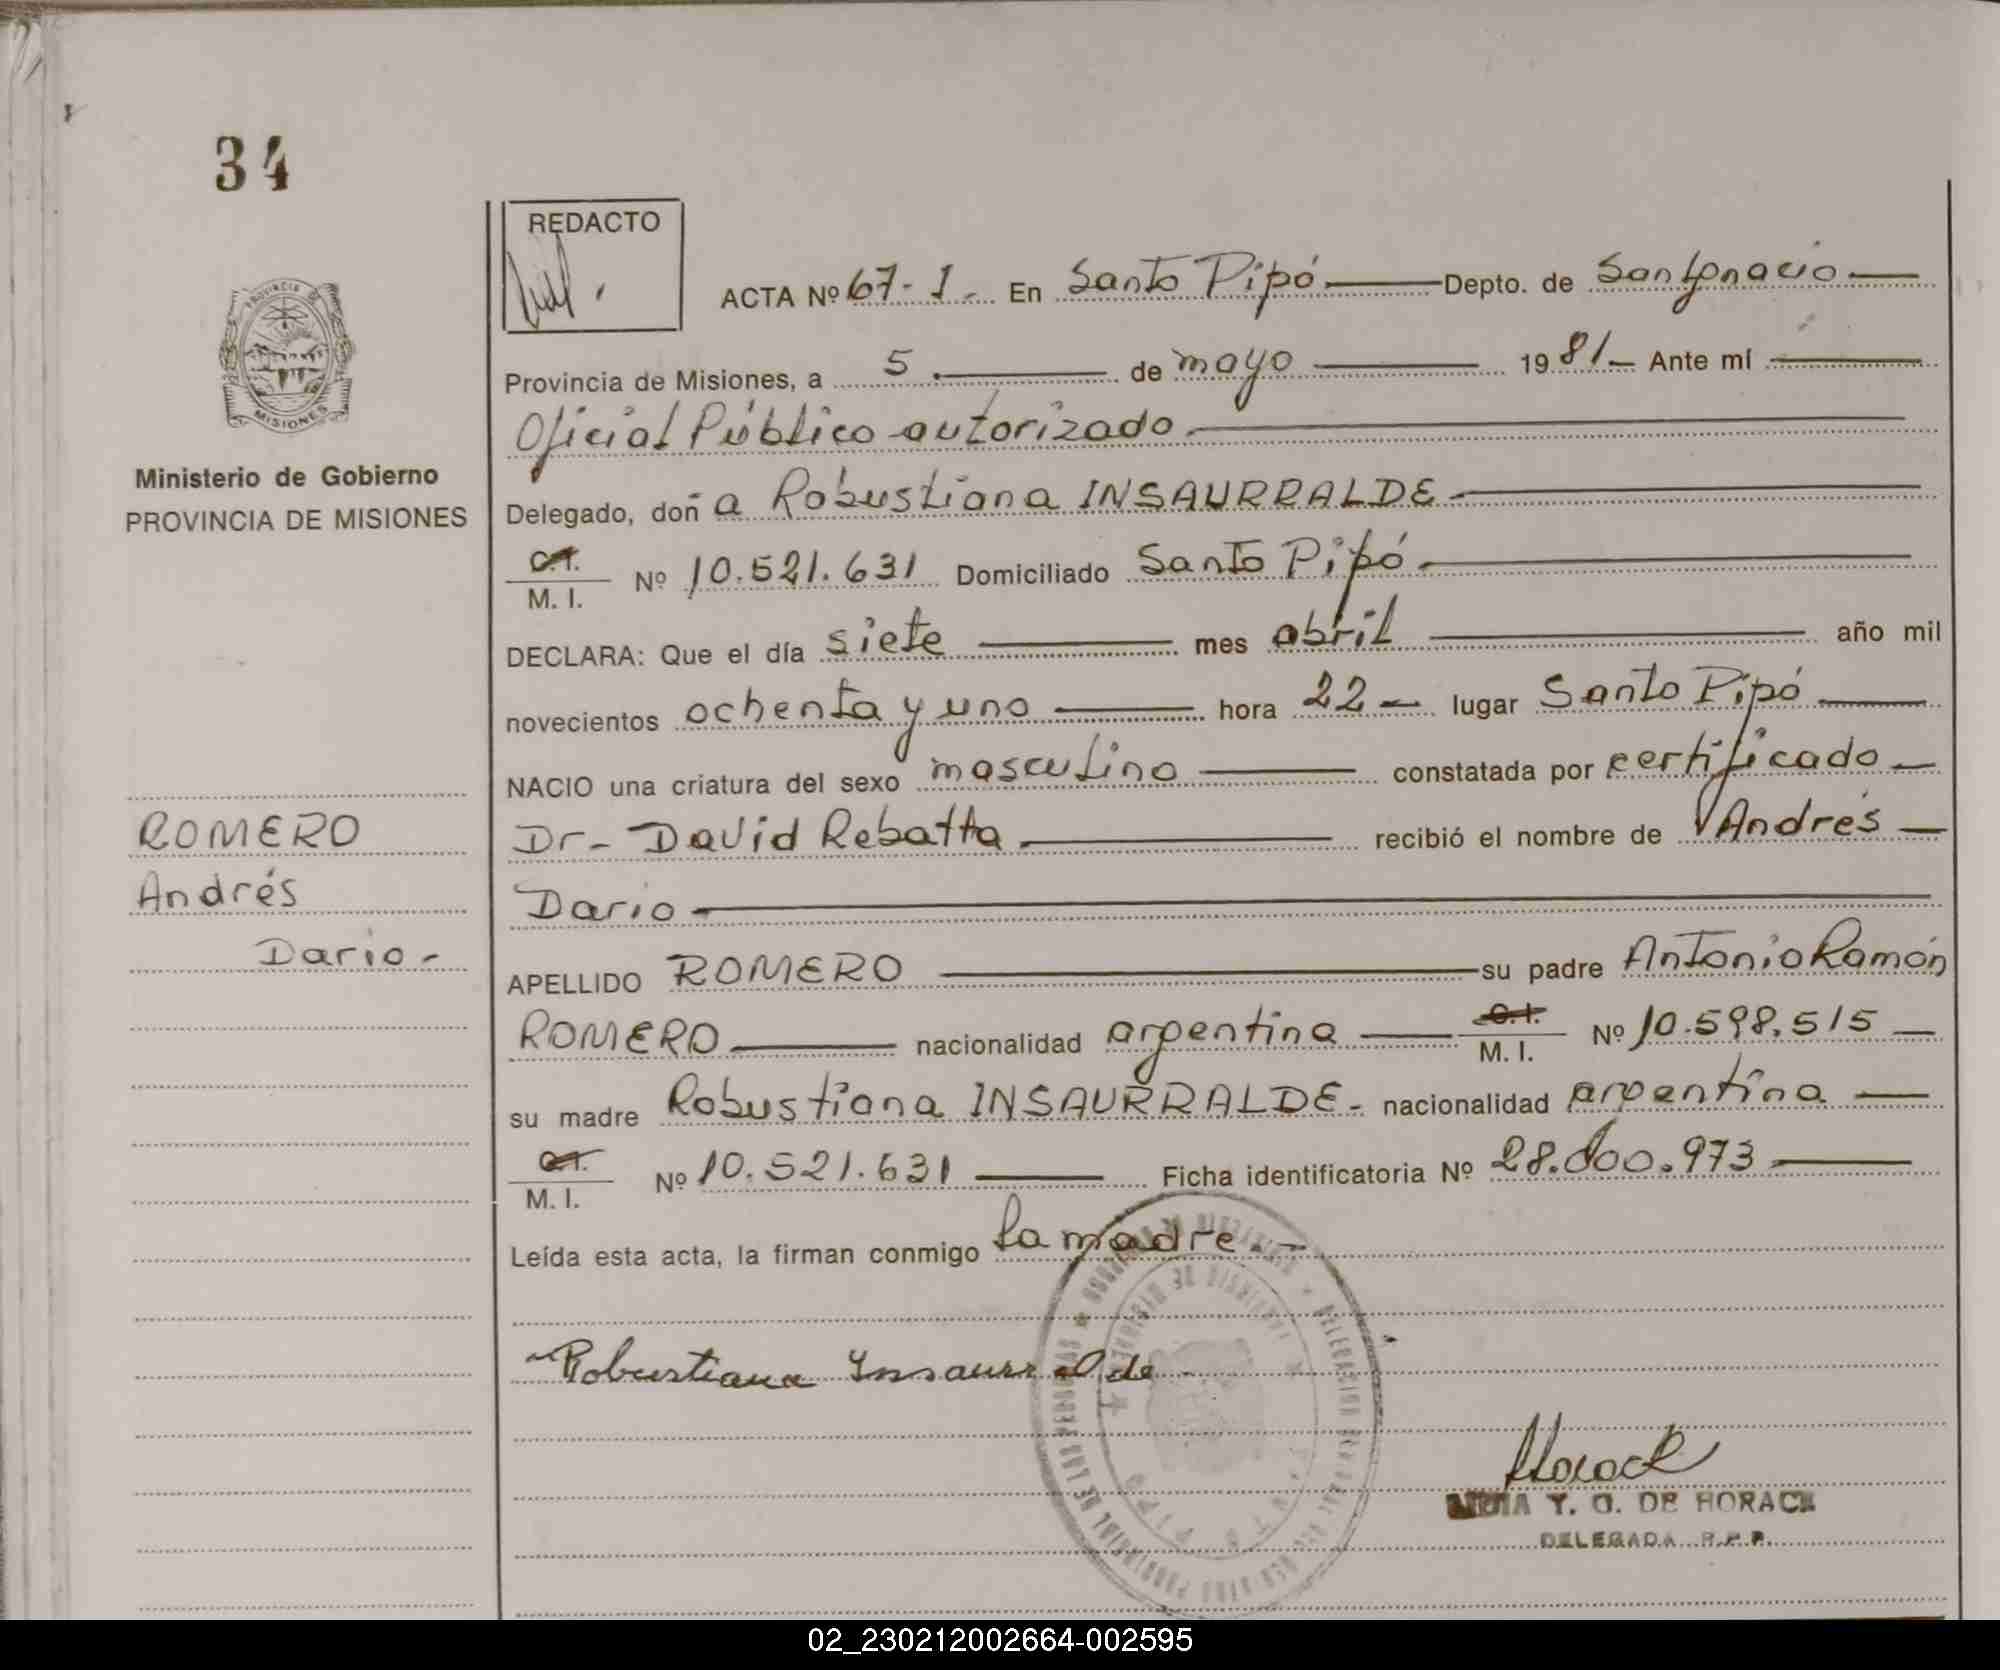 34
REDACTO
ACTA Nº 67-1.- En Santo Pipó Depto. de San Ignacio
Provincia de Misiones, a 5 de mayo 1981- Ante mí
Oficial Público autorizado
Delegado, doña Robustiana INSAURRALDE
C.I.
M. I. Nº 10.521.631 Domiciliado Santo Pipó
DECLARA: Que el día siete mes abril año mil
novecientos ochenta y uno hora 22- lugar Santo Pipó
NACIO una criatura del sexo masculino constatada por certificado
Dr- David Rebatta recibió el nombre de Andrés
Dario
APELLIDO ROMERO su padre Antonio Ramón
ROMERO nacionalidad argentina C.I. M. I. Nº 10.598.515
su madre Robustiana INSAURRALDE- nacionalidad argentina
C.I.
M. I. Nº 10.521.631 Ficha identificatoria Nº 28.800.973
Leída esta acta, la firman conmigo la madre.-
Robustiana Insaurralde
Horack
Y. O. DE HORACK
DELEGADA R.P.P.
PROVINCIA DE
MISIONES
Ministerio de Gobierno
PROVINCIA DE MISIONES
ROMERO
Andrés
Dario-
PROVINCIAL DE LAS PERSONAS
02_230212002664-002595